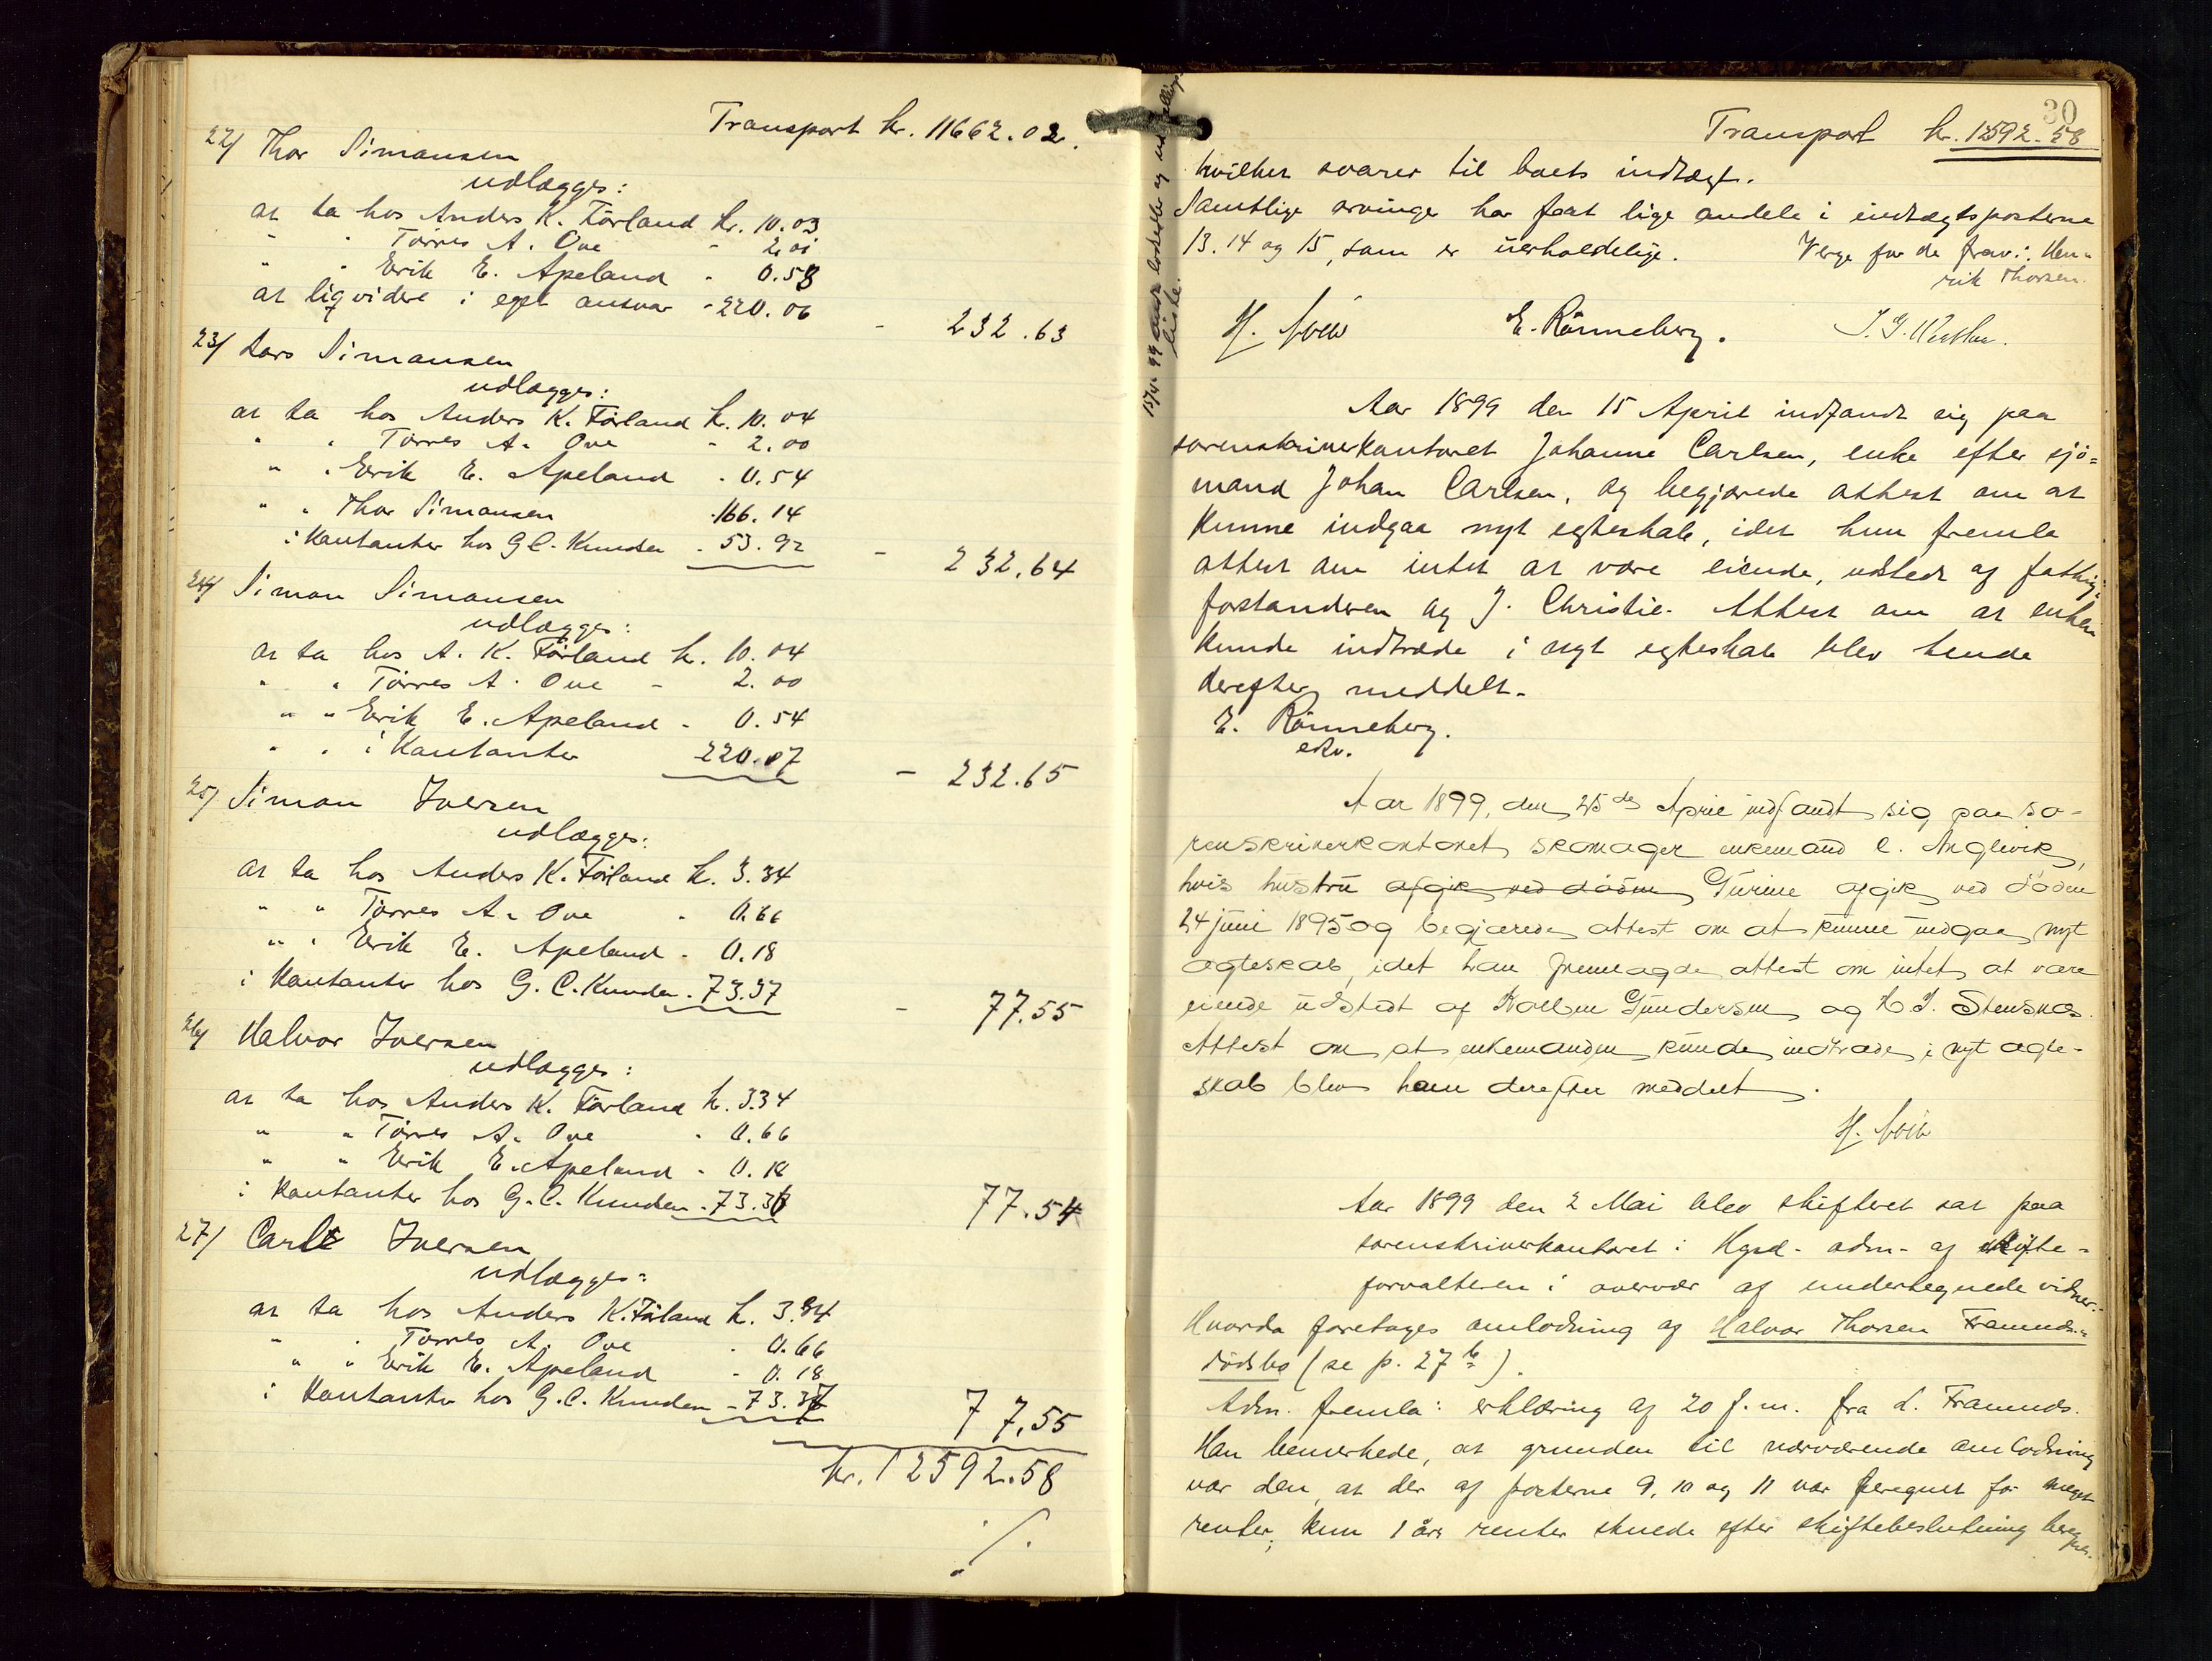 Transport kr. 11662.02.
22/ Thor Simonsen
udlægges:
at ta hos Anders K. Førland kr. 10.03
" " Tørres A. Ove - 2.01
" " Eerik E. Apeland - 0.53
at liqvidere i eget ansvar - 220.06 - 232.63
23/ Lars Simonsen
udlægges:
at ta hos Anders K. Førland kr. 10.04
" " Tørres A. Ove - 2.00
" " Eerik E. Apeland - 0.54
" " Thor Simonsen - 166.14
i Kontanter hos G.C. Knudsen - 53.92 - 232.64
24/ Simon Simonsen
udlægges:
at ta hos A. K. Førland kr. 10.04
" " Tørres A. Ove - 2.00
" " Eerik E. Apeland - 0.54
" " i Kontanter 220.07 - 232.65
25/ Simon Iversen
udlægges:
at ta hos Anders K. Førland kr. 3.34
" " Tørres A. Ove - 0.66
" " Eerik E. Apeland - 0.18
i Kontanter hos G. C. Knudsen - 73.37 - 77.55
26/ Halvor Iversen
udlægges:
at ta hos Anders K. Førland kr. 3.34
" " Tørres A. Ove - 0.66
" " Eerik E. Apeland - 0.18
i Kontanter hos G. C. Knudsen - 73.36 77.54
27/ Carl Iversen
udlægges:
at ta hos Anders K. Førland kr. 3.34
" " Tørres A. Ove - 0.66
" " Eerik E. Apeland - 0.18
i Kontanter hos G. C. Knudsen - 73.37 77.55
kr. 12592.58
./.
30
Transport kr. 12592.58
hvilket svarer til boets indtægt.
Samtlige arvinge har faat lige andele i indtægtsposterne
13. 14 og 15, som er uerholdelige. Verge for de frav.: Hen-
rik Thorsen.
E. Rønneberg.
15/4 99
liste.
Aar 1899 den 15 April indfandt sig paa
sorenskriverkontoret Johanne Carlsen, enke efter sjø-
mand Johan Carlsen, og begjærede attest om at
kunne indgaa nyt egteskab, idet hun fremla
attest om intet at være eiende, udstedt af fattig-
forstanderen og J. Christie. Attest om at enken
kunde indtræde i nyt egteskab blev hende
derefter meddelt.
E. Rønneberg.
edv.
Aar 1899, den 25de April indfandt sig paa so-
renskriverkontoret skomager enkemand C. Anglevik,
hvis hustru afgik ved døden Turine afgik ved døden
24 juni 1895 og begjærede attest om at kunne indgaa nyt
ægteskab, idet han fremlagde attest om intet at være
eiende udstedt af Gundersen og Stensnes.
Attest om at enkemanden kunde indtræde i nyt ægte-
skab blev ham derefter meddelt.
Aar 1899 den 2 Mai blev skifteret sat paa
sorenskriverkontoret i Hgsd. adm. af skifte-
forvalteren i overvær af undertegnede vidner.
Hvorda foretoges omlodning af Halvor Thorsen Framnes
dødsbo (se p. 27 b).
Adm. fremla: erklæring af 20 f. m. fra L. Framnes.
Han bemerkede, at grunden til nærværende omlodning
var den, at der af posterne 9, 10 og 11 var beregnet for meget
renter, kun 1 års renter skulde efter skiftebeslutning beregnes.